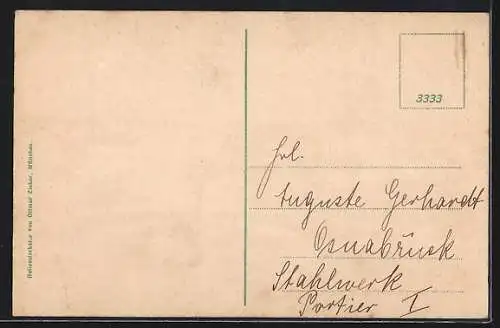 3333
Frl.
Auguste Gerhardt
Osnabrück
Stahlwerk
Portier I
Ottmar Zieher, München.